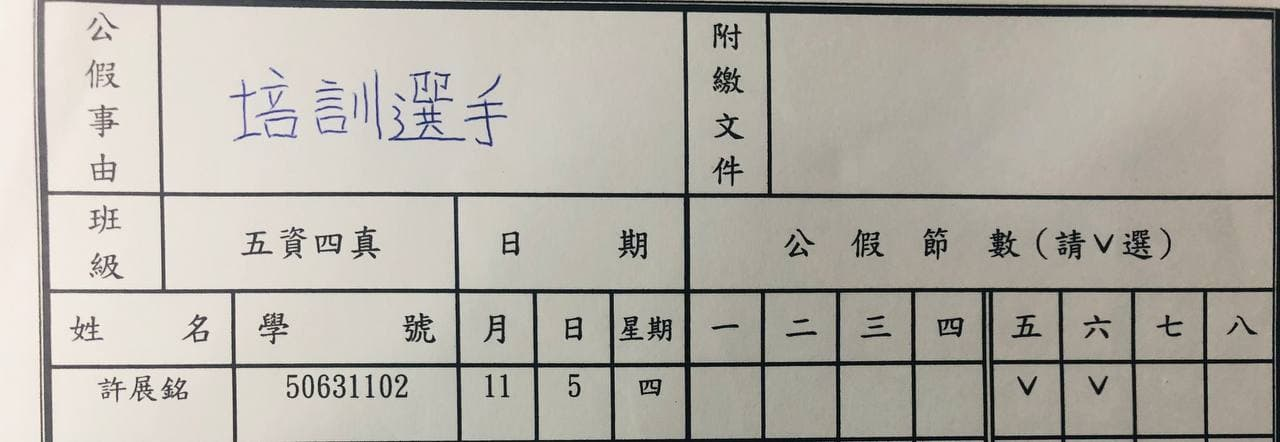 公假事由 培訓選手 附繳文件
班級 五資四真 日期 公假節數(請∨選)
姓名 學號 月 日 星期 一 二 三 四 五 六 七 八
許展銘 50631102 11 5 四 ∨ ∨